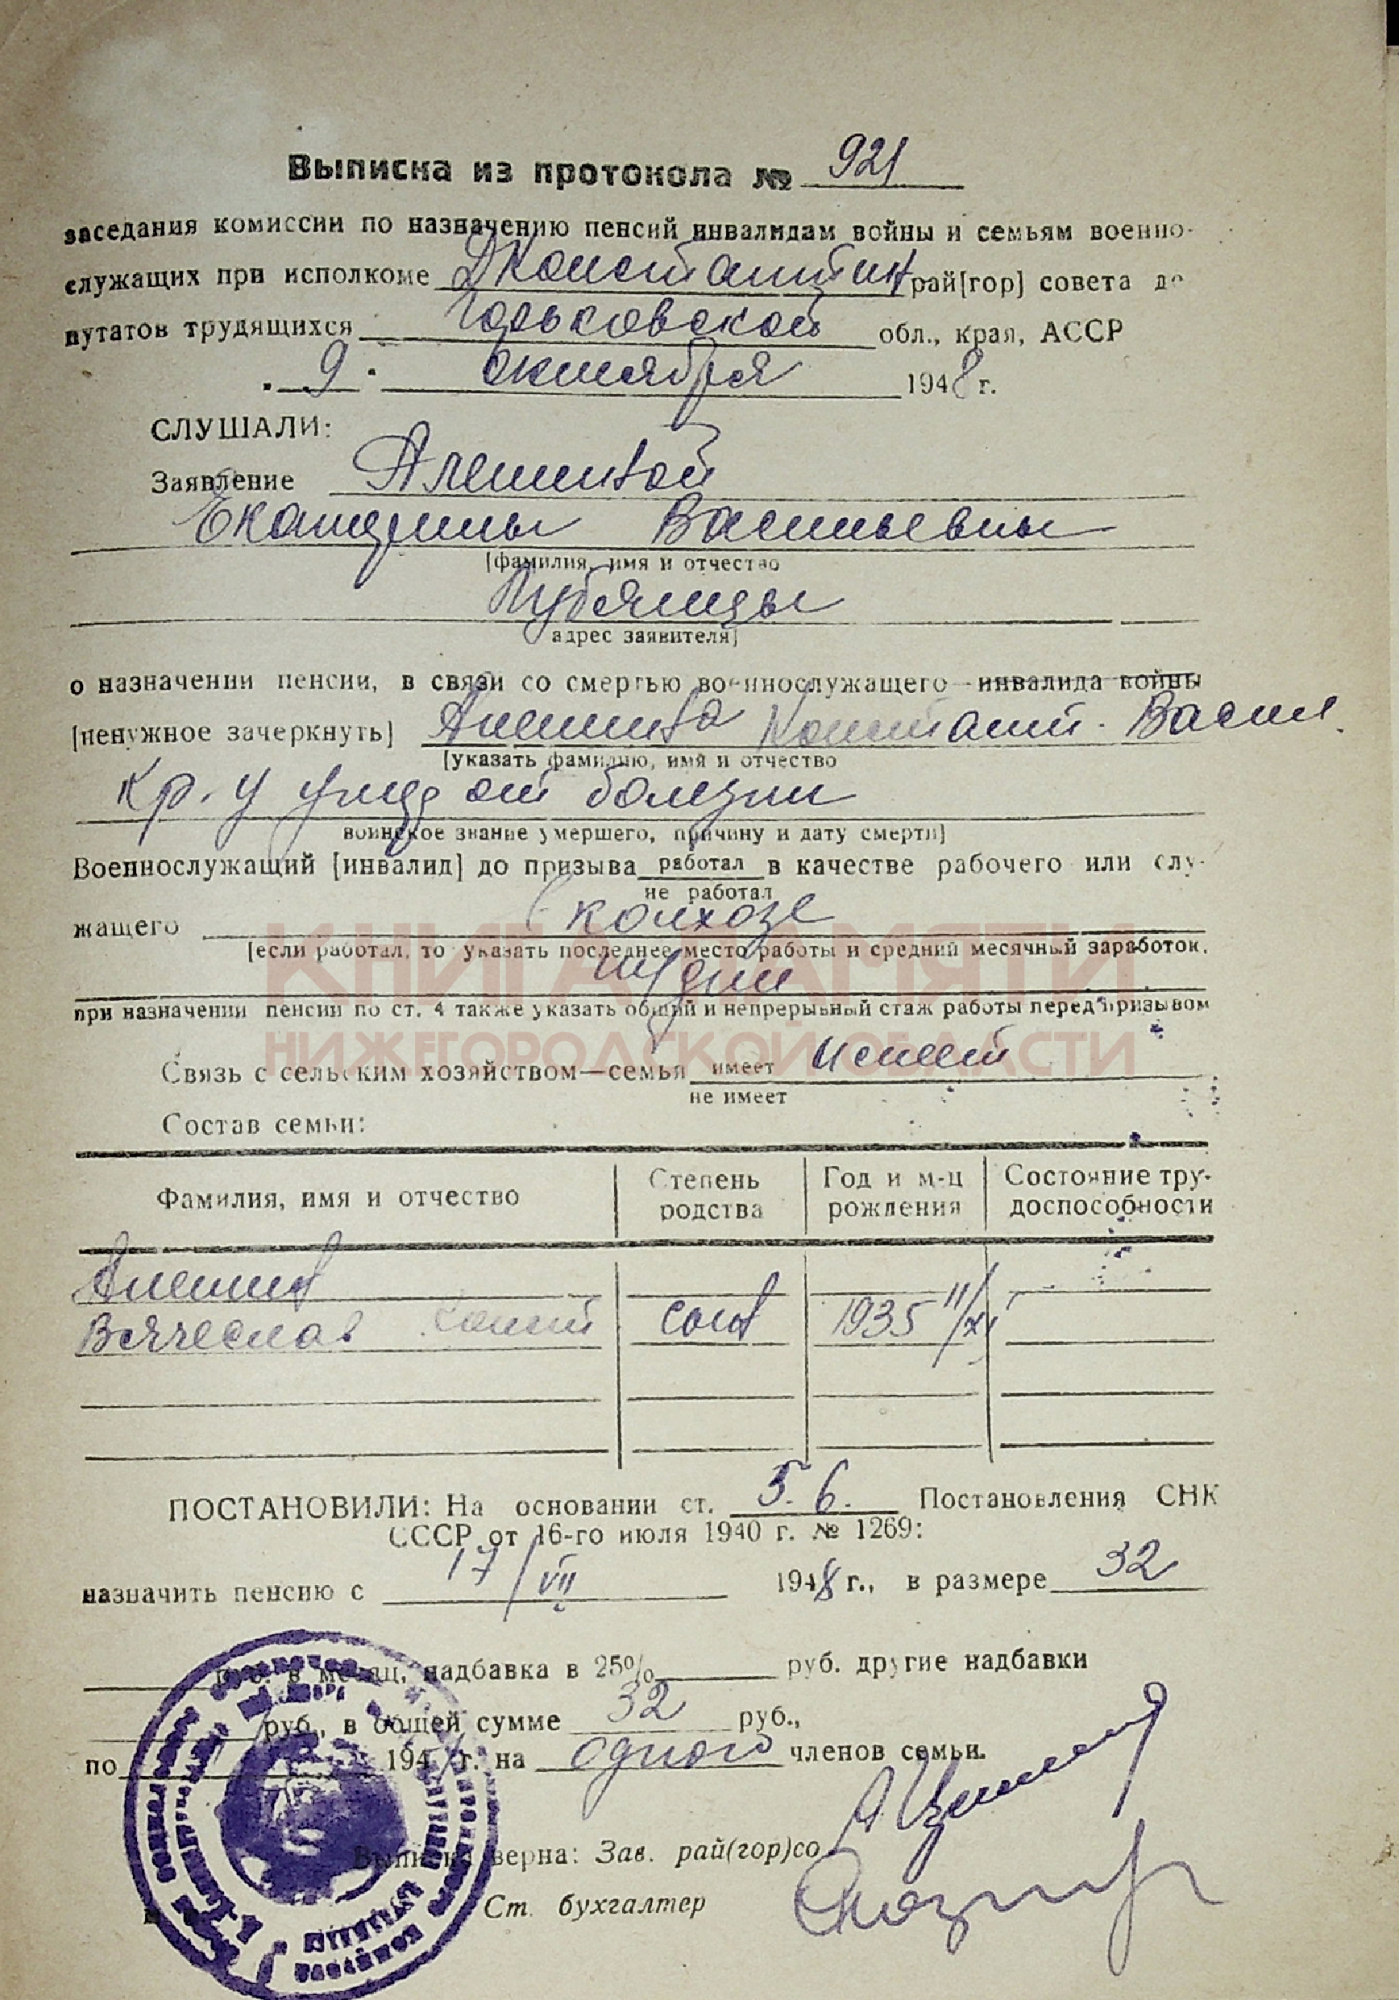 Выписка из протокола № 921
заседания комиссии по назначению пенсий инвалидам войны и семьям военно-
служащих при исполкоме Дконстантин рай[гор] совета де
путатов трудящихся Горьковской обл., края, АССР
. 9 . октября 1948 г.
СЛУШАЛИ:
Заявление Алешиной
Екатерины Васильевны
[фамилия, имя и отчество
адрес заявителя]
о назначении пенсии, в связи со смертью военнослужащего—инвалида войны
[ненужное зачеркнуть] Алешина Констант. Васил.
[указать фамилию, имя и отчество
Кр. у умер от болезни
воинское звание умершего, причину и дату смерти]
Военнослужащий [инвалид] до призыва работал в качестве рабочего или слу-
не работал
жащего колхозе
[если работал, то указать последнее место работы и средний месячный заработок,
т/дни
при назначении пенсии по ст. 4 также указать общий и непрерывный стаж работы перед призывом
КНИГА ПАМЯТИ
НИЖЕГОРОДСКОЙ ОБЛАСТИ
Связь с сельским хозяйством—семья имеет имеет
не имеет
Состав семьи:
Фамилия, имя и отчество Степень родства Год и м-ц рождения Состояние тру-доспособности
Алешин
Вячеслав Конст сын 1935 11/XI
ПОСТАНОВИЛИ: На основании ст. 5. 6. Постановления СНК
СССР от 16-го июля 1940 г. № 1269:
назначить пенсию с 17/VII 1948 г., в размере 32
руб. в месяц, надбавка в 25% руб. другие надбавки
руб., в общей сумме 32 руб.,
по 194 г. на одного членов семьи.
Выписка верна: Зав. рай(гор)со
Ст. бухгалтер